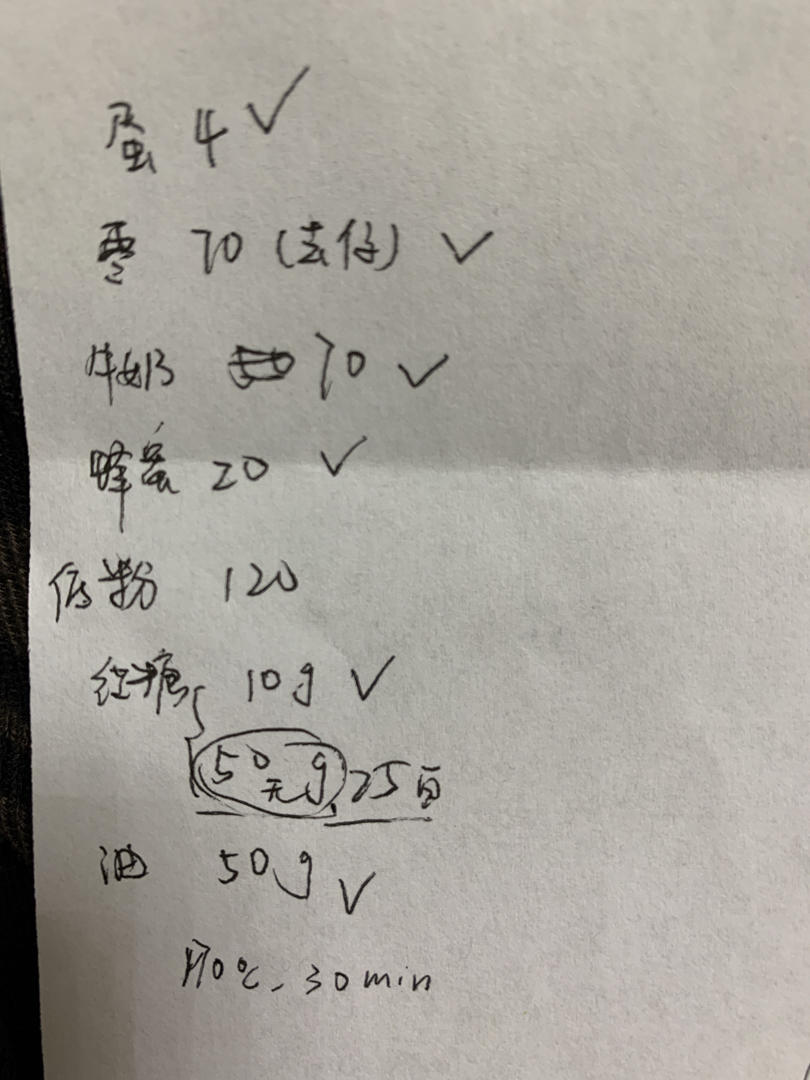 蛋 4 ✓
枣 70 (去仔) ✓
牛奶 70 ✓
蜂蜜 20 ✓
低粉 120
红糖 10g ✓
50g 无 25白
油 50g ✓
170℃、30min